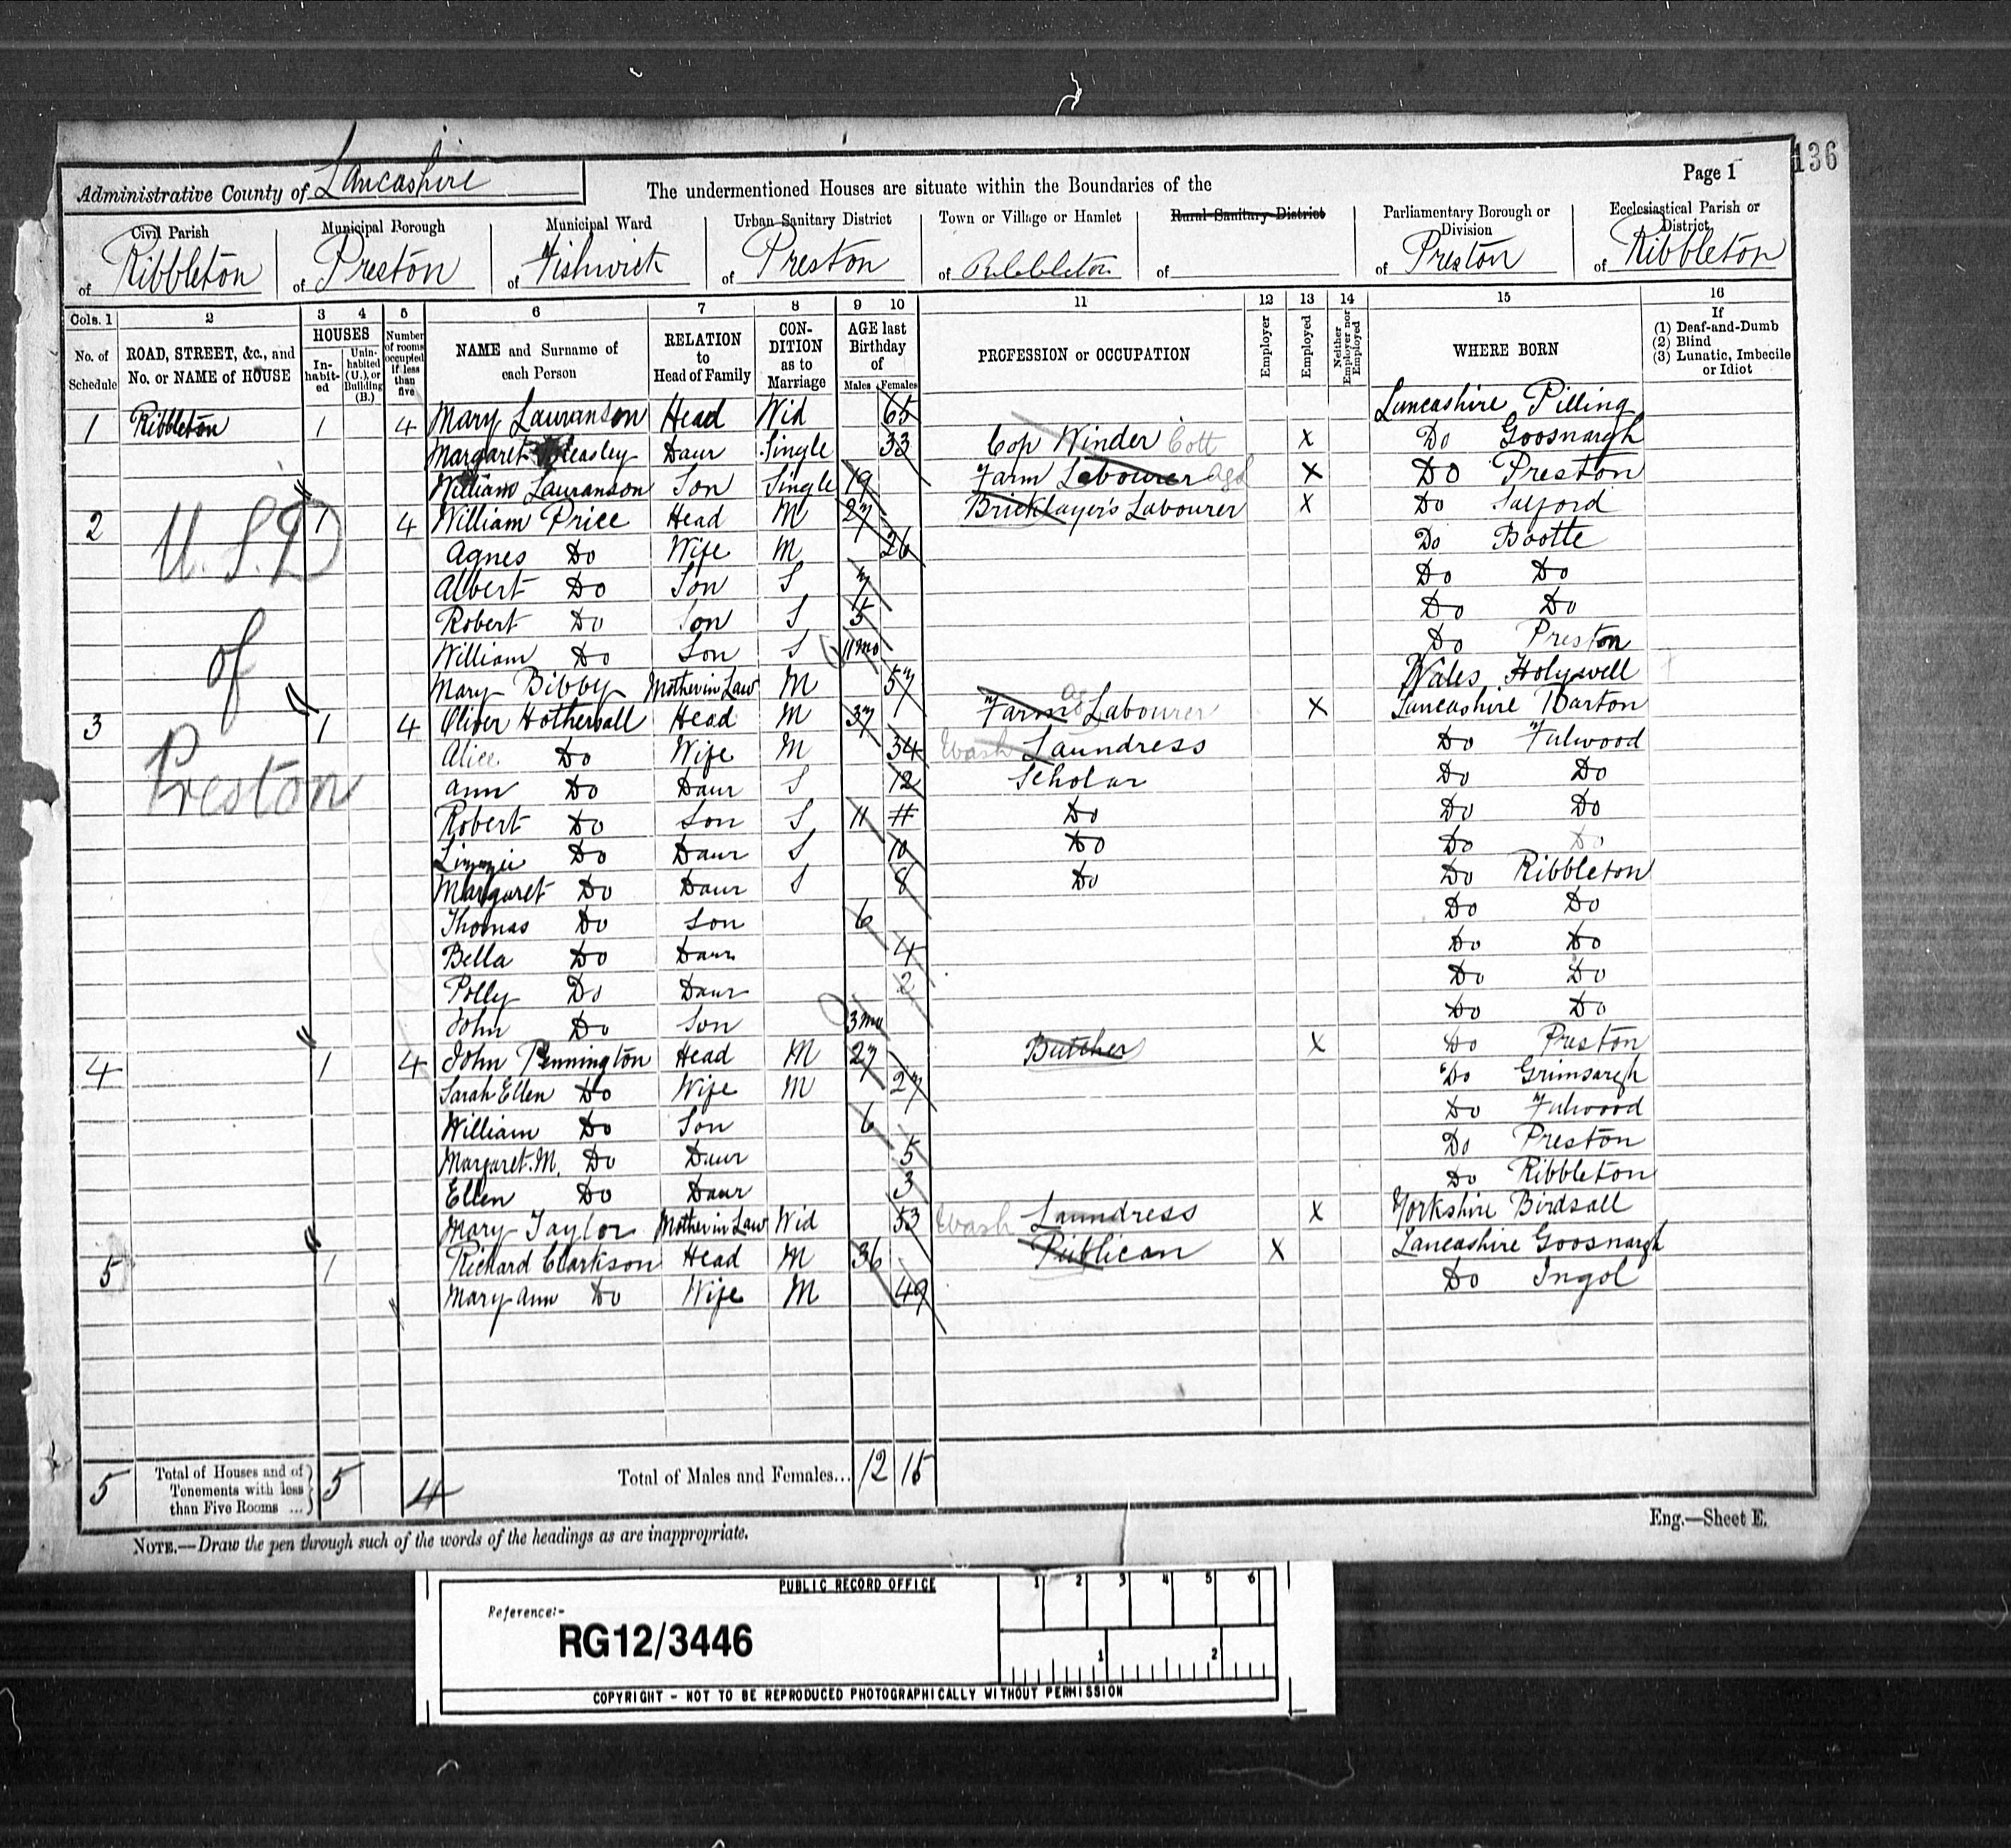 136
Administrative County of Lancashire The undermentioned Houses are situate within the Boundaries of the Page 1
Civil Parish Municipal Borough Municipal Ward Urban Sanitary District Town or Village or Hamlet Rural Sanitary District Parliamentary Borough or Division Ecclesiastical Parish or District
of Ribbleton of Preston of Fishwick of Preston of Ribbleton of of Preston of Ribbleton
Cols. 1 2 3 4 5 6 7 8 9 10 11 12 13 14 15 16
No. of Schedule ROAD, STREET, &c., and No. or NAME of HOUSE HOUSES Inhabited Uninhabited (U.), or Building (B.) Number of rooms occupied if less than five NAME and Surname of each Person RELATION to Head of Family CONDITION as to Marriage AGE last Birthday of Males Females PROFESSION or OCCUPATION Employer Employed Neither Employer nor Employed WHERE BORN If (1) Deaf-and-Dumb (2) Blind (3) Lunatic, Imbecile or Idiot
1 Ribbleton 1 4 Mary Lawranson Head Wid 65 Lancashire Pilling
Margaret Bleasley Daur Single 33 Cop Winder Cott X Do Goosnargh
William Lawranson Son Single 19 Farm Labourer Agl X Do Preston
2 1 4 William Price Head M 27 Bricklayer's Labourer X Do Salford
U.S.D
Agnes Do Wife M 26 Do Bootte
Albert Do Son S 7 Do Do
Robert Do Son S 5 Do Do
of
William Do Son S 11mo Do Preston
Mary Bibby Mother in Law M 57 Wales Holywell
3 1 4 Oliver Hothersall Head M 37 Farm Ag Labourer X Lancashire Barton
Preston
Alice Do Wife M 34 Wash Laundress Do Fulwood
Ann Do Daur S 12 Scholar Do Do
Robert Do Son S 11 Do Do Do
Lizzie Do Daur S 10 Do Do Do
Margaret Do Daur S 8 Do Do Ribbleton
Thomas Do Son 6 Do Do
Bella Do Daur 4 Do Do
Polly Do Daur 2 Do Do
John Do Son 3mo Do Do
4 1 4 John Pennington Head M 27 Butcher X Do Preston
Sarah Ellen Do Wife M 27 Do Grimsargh
William Do Son 6 Do Fulwood
Margaret.M. Do Daur 5 Do Preston
Ellen Do Daur 3 Do Ribbleton
Mary Taylor Mother in Law Wid 53 Wash Laundress X Yorkshire Birdsall
5 1 Richard Clarkson Head M 36 Publican X Lancashire Goosnargh
Mary Ann Do Wife M 49 Do Ingol
5 Total of Houses and of Tenements with less than Five Rooms ... 5 4 Total of Males and Females... 12 15
NOTE.—Draw the pen through such of the words of the headings as are inappropriate. Eng.—Sheet E.
PUBLIC RECORD OFFICE 1 2 3 4 5 6
Reference:-
RG12/3446
1 2
COPYRIGHT - NOT TO BE REPRODUCED PHOTOGRAPHICALLY WITHOUT PERMISSION